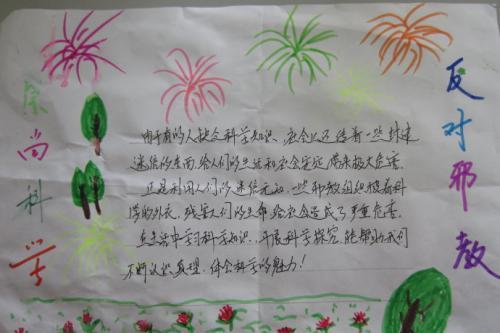 崇尚科学
反对邪教
由于有的人缺乏科学知识，社会上还存着一些封建
迷信的东西，给人们的生活和社会安定带来极大危害。
正是利用人们的迷信无知，一些邪教组织披着科
学的外衣，残害人们的生命，给社会造成了严重危害。
在生活中学习科学知识，开展科学探究，能帮助我们
不断认识真理，体会科学的魅力！